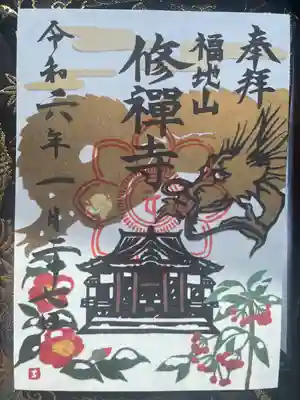 奉拝
福地山
修禅寺
令和六年一月二十七日